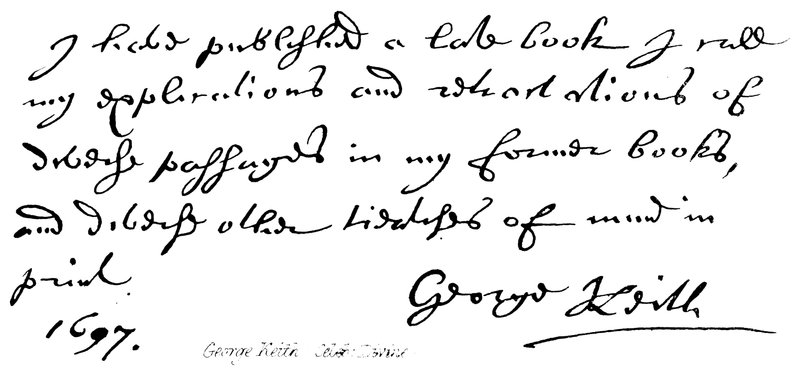 I have published a late book I call
my explications and retractations of
diverse passages in my former books,
and diverse other treatises of mine in
print.
1697.
George Keith
George Keith Celebr. Divine